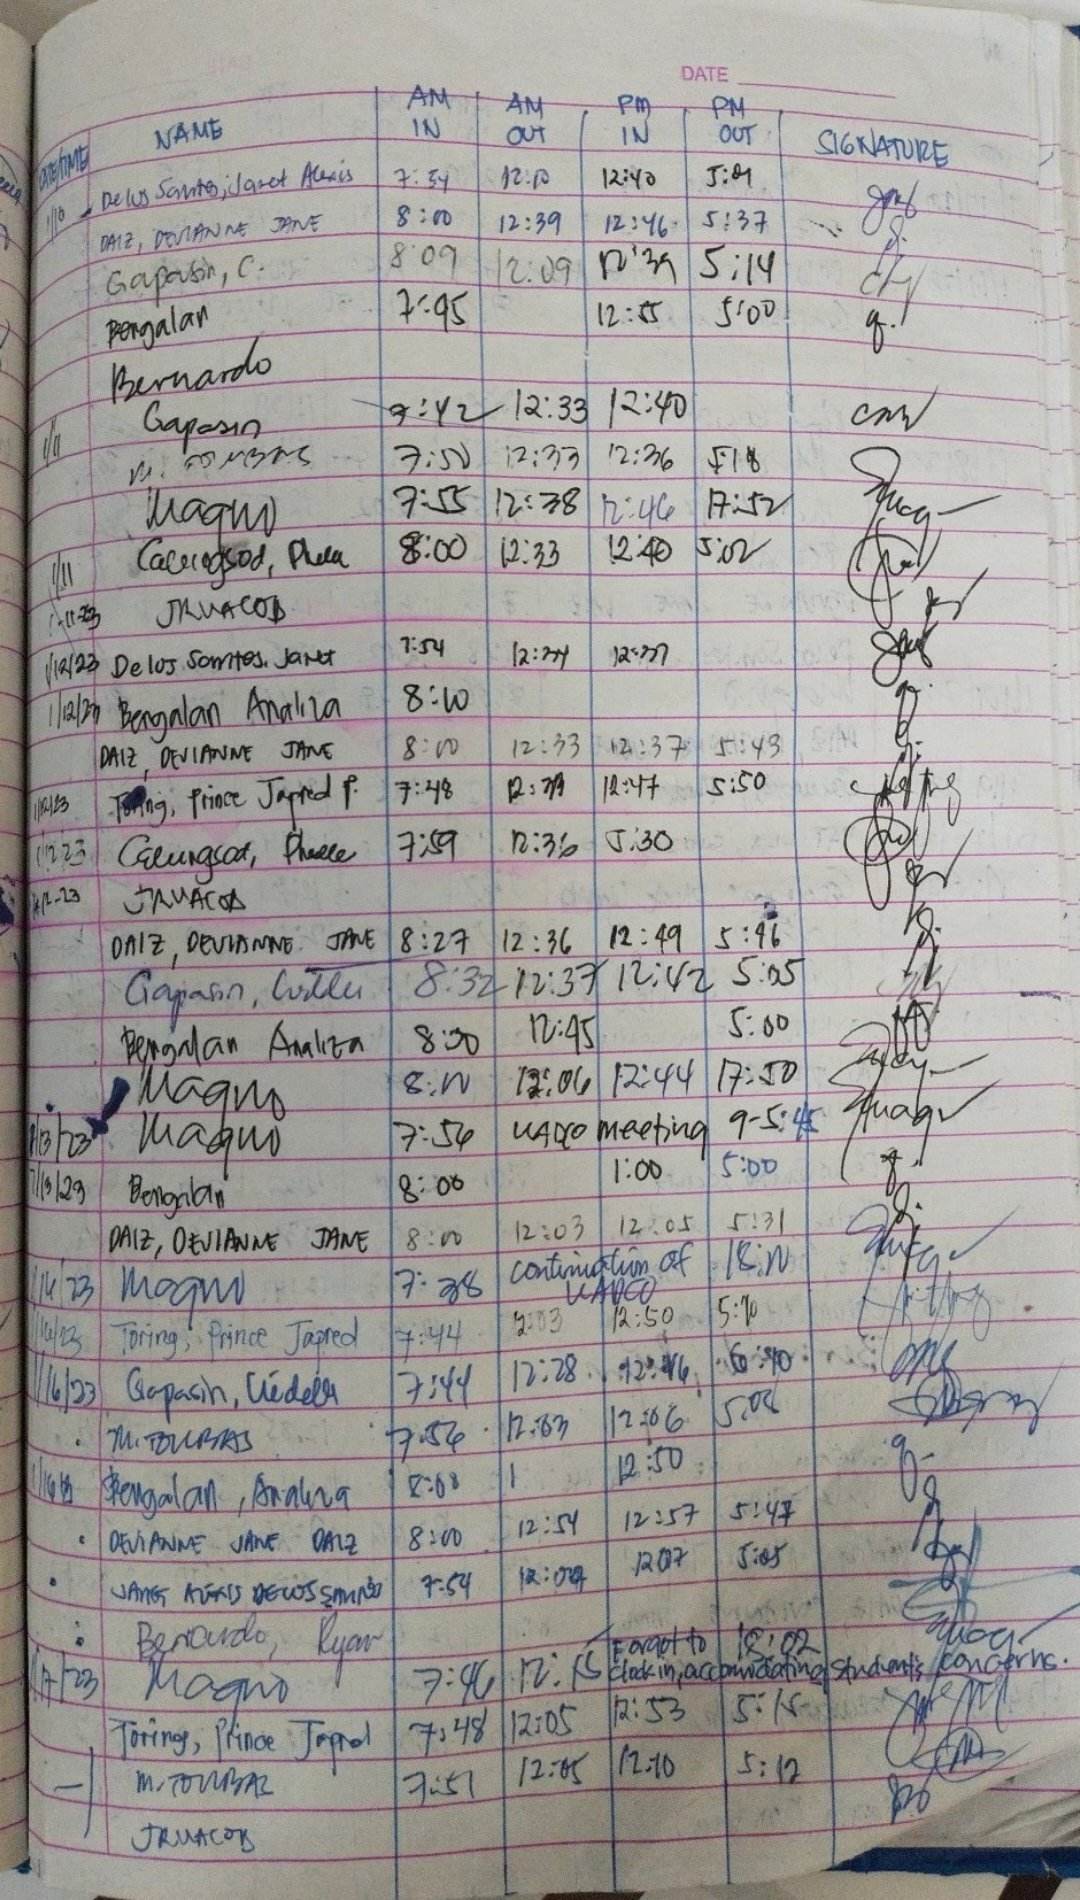 DATE
DATE/TIME NAME AM IN AM OUT PM IN PM OUT SIGNATURE
1/10 Delos Santos, Janet Alexis 7:54 12:10 12:40 5:01
DAIZ, DEVIANNE JANE 8:00 12:39 12:46 5:37
Gapasin, C. 8:09 12:09 12:39 5:14
Bengalan 7:45 12:55 5:00
Bernardo
1/11 Gapasin 7:42 12:33 12:40
M. 7:50 12:33 12:36 5:18
Magno 7:55 12:38 12:46 17:52
1/11 8:00 12:33 12:40 5:02
JRUACOB
1/12/23 Delos Santos, Janet 7:54
1/12/23 Bengalan Analiza 8:10
DAIZ, DEVIANNE JANE 8:00 12:33 12:37 5:43
1/12/23 Toring, Prince Japred P. 7:48 12:39 12:47 5:50
7:59 12:36 5:30
JRUACOB
DAIZ, DEVIANNE JANE 8:27 12:36 12:49 5:46
Gapasin, 8:32 12:37 12:42 5:05
Bengalan Analiza 8:00 12:45 5:00
Magno 8:10 12:06 12:44 17:50
1/13/23 Magno 7:56 meeting 9-5:45
1/13/23 Bengalan 8:00 1:00 5:00
DAIZ, DEVIANNE JANE 8:00 12:03 12:05 5:31
1/16/23 Magno 7:38 continuation of 18:10
1/16/23 Toring, Prince Japred 7:44 12:03 12:50 5:10
1/16/23 Gapasin, 7:44 12:28 12:46
M. 7:56 12:03 12:06 5:08
Bengalan, Analiza 8:00 12:50
DEVIANNE JANE DAIZ 8:00 12:54 12:57 5:47
JANET ALEXIS DELOS SANTOS 7:54 12:04 12:07 5:05
Bernardo, Ryan
1/17/23 Magno 7:46 12:15 Forgot to 18:02
clock in, accomodating student's concerns.
Toring, Prince Japred 7:48 12:05 12:53 5:15
M. 7:51 12:05 12:10 5:12
JRUACOB